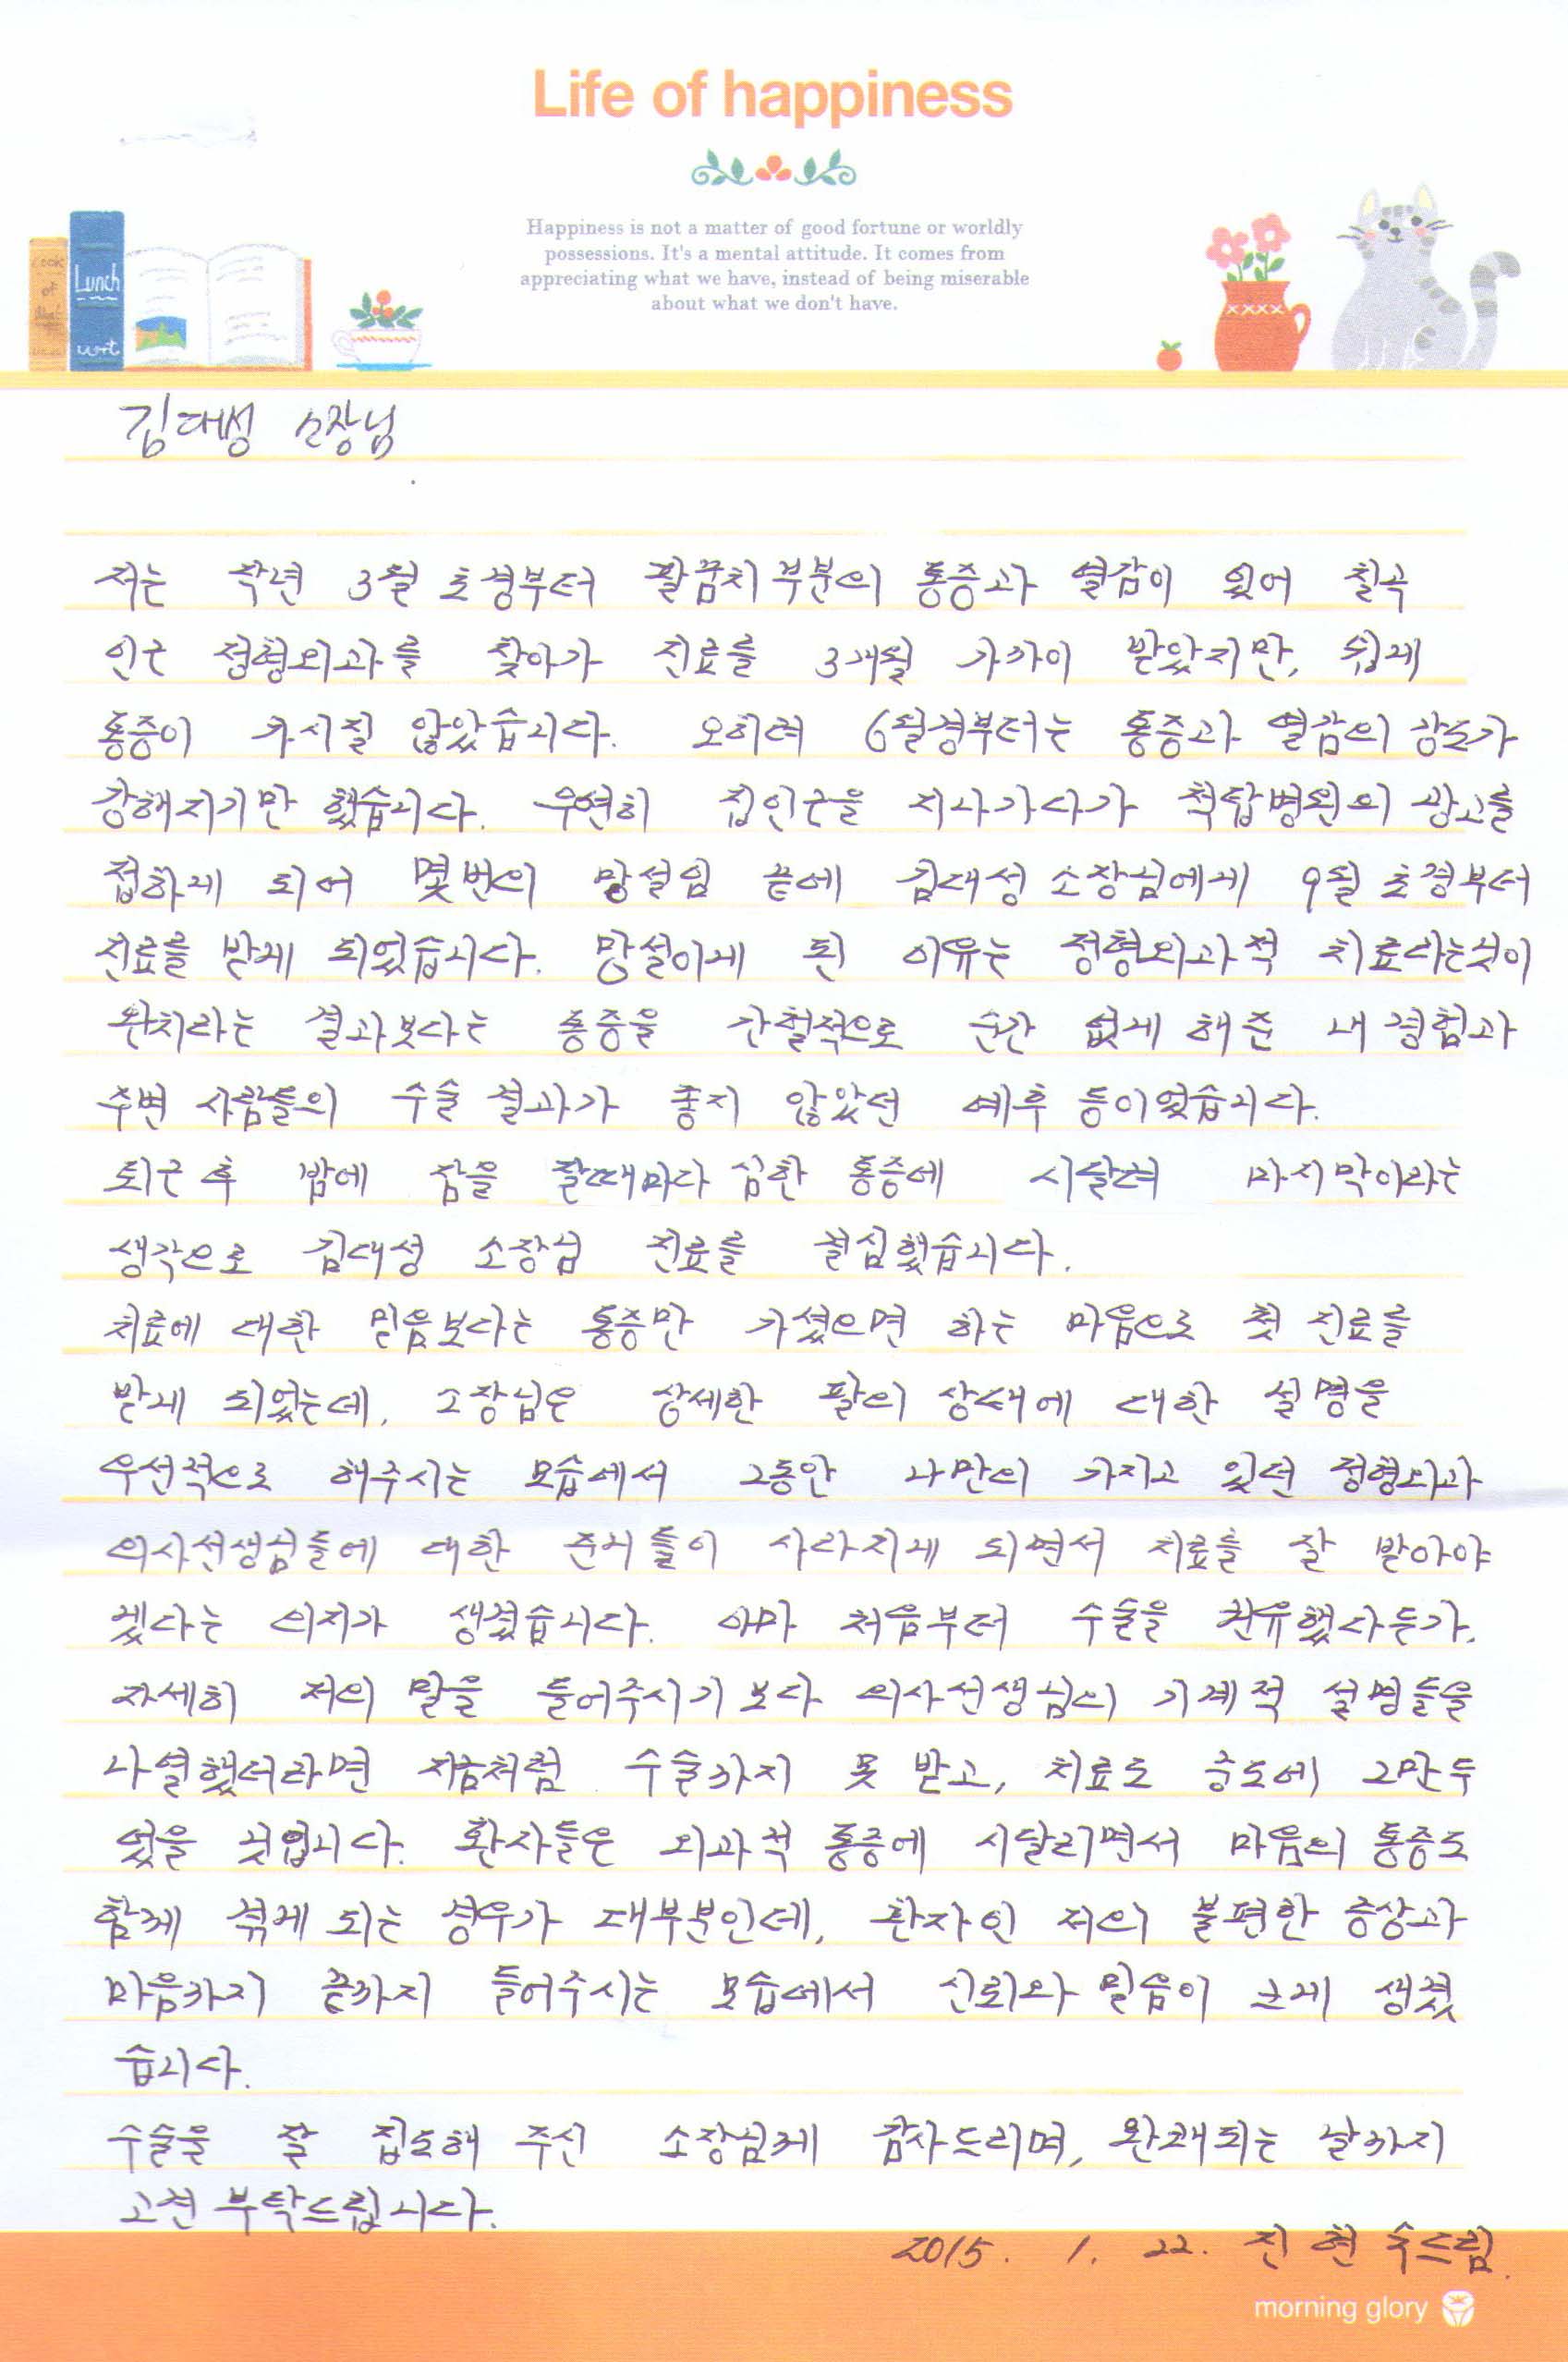 Life of happiness
Happiness is not a matter of good fortune or worldly
possessions. It's a mental attitude. It comes from
appreciating what we have, instead of being miserable
about what we don't have.
Lunch
김대성 소장님
저는 작년 3월 초경부터 팔꿈치 부분의 통증과 열감이 있어 칠곡
인근 정형외과를 찾아가 진료를 3개월 가까이 받았지만, 쉽게
통증이 가시질 않았습니다. 오히려 6월경부터는 통증과 열감의 강도가
강해지기만 했습니다. 우연히 집인근을 지나가다가 척탑병원의 광고를
접하게 되어 몇번의 망설임 끝에 김대성 소장님에게 9월 초경부터
진료를 받게 되었습니다. 망설이게 된 이유는 정형외과적 치료라는것이
완치라는 결과보다는 통증을 간헐적으로 순간 없게 해준 내 경험과
주변 사람들의 수술 결과가 좋지 않았던 예후 등이었습니다.
퇴근 후 밤에 잠을 잘때마다 심한 통증에 시달려 마지막이라는
생각으로 김대성 소장님 진료를 결심했습니다.
치료에 대한 믿음보다는 통증만 가셨으면 하는 마음으로 첫 진료를
받게 되었는데, 소장님은 상세한 팔의 상태에 대한 설명을
우선적으로 해주시는 모습에서 그동안 나만이 가지고 있던 정형외과
의사선생님들에 대한 들이 사라지게 되면서 치료를 잘 받아야
겠다는 의지가 생겼습니다. 아마 처음부터 수술을 권유했다든가,
자세히 저의 말을 들어주시기 보다 의사선생님의 기계적 설명들을
나열했더라면 지금처럼 수술까지 못 받고, 치료도 중도에 그만두
었을 것입니다. 환자들은 외과적 통증에 시달리면서 마음의 통증도
함께 겪게 되는 경우가 대부분인데, 환자인 저의 불편한 증상과
마음까지 끝까지 들어주시는 모습에서 신뢰와 믿음이 크게 생겼
습니다.
수술을 잘 집도해 주신 소장님께 감사드리며, 완쾌되는 날까지
고견 부탁드립니다.
2015. 1. 22. 진현수드림.
morning glory